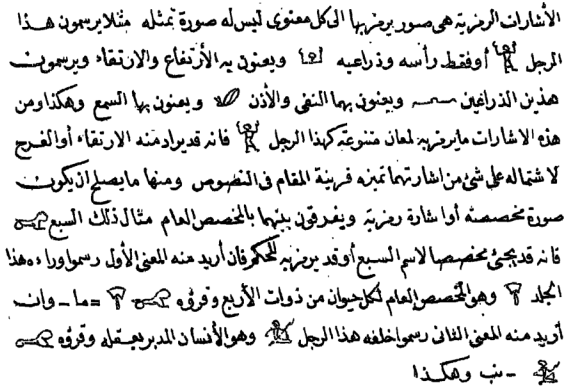 الأشارات الرمزية هى صور يرمز بها الى كل معنوى ليس له صورة تمثله مثلا يرسمون هذا
الرجل أو فقط رأسه وذراعيه ويعنون به الأرتفاع والارتقاء ويرسمون
هذين الذراعين ويعنون بهما النفى والأذن ويعنون بها السمع وهكذا ومن
هذه الاشارات ما يرمز به لمعان متنوعة كهذا الرجل فانه قد يراد منه الارتقاء أو الفرح
لاشتماله على شئ من اشارتهما تميزه قرينة المقام فى النصوص ومنها ما يصلح ان يكون
صورة مخصصه أو اشارة رمزية ويفرقون بينهما بالمخصص العام مثال ذلك السبع
فانه قد يجئ مخصصا لاسم السبع أو قد يرمز به للحكم فان أريد منه المعنى الأول رسموا وراءه هذا
الجلد وهو المخصص العام لكل حيوان من ذوات الأربع وقرؤه = ما ـ وان
أريد منه المعنى الثانى رسموا خلفه هذا الرجل وهو الأنسان المدبر بعقله وقرؤه
ـ نب وهكذا